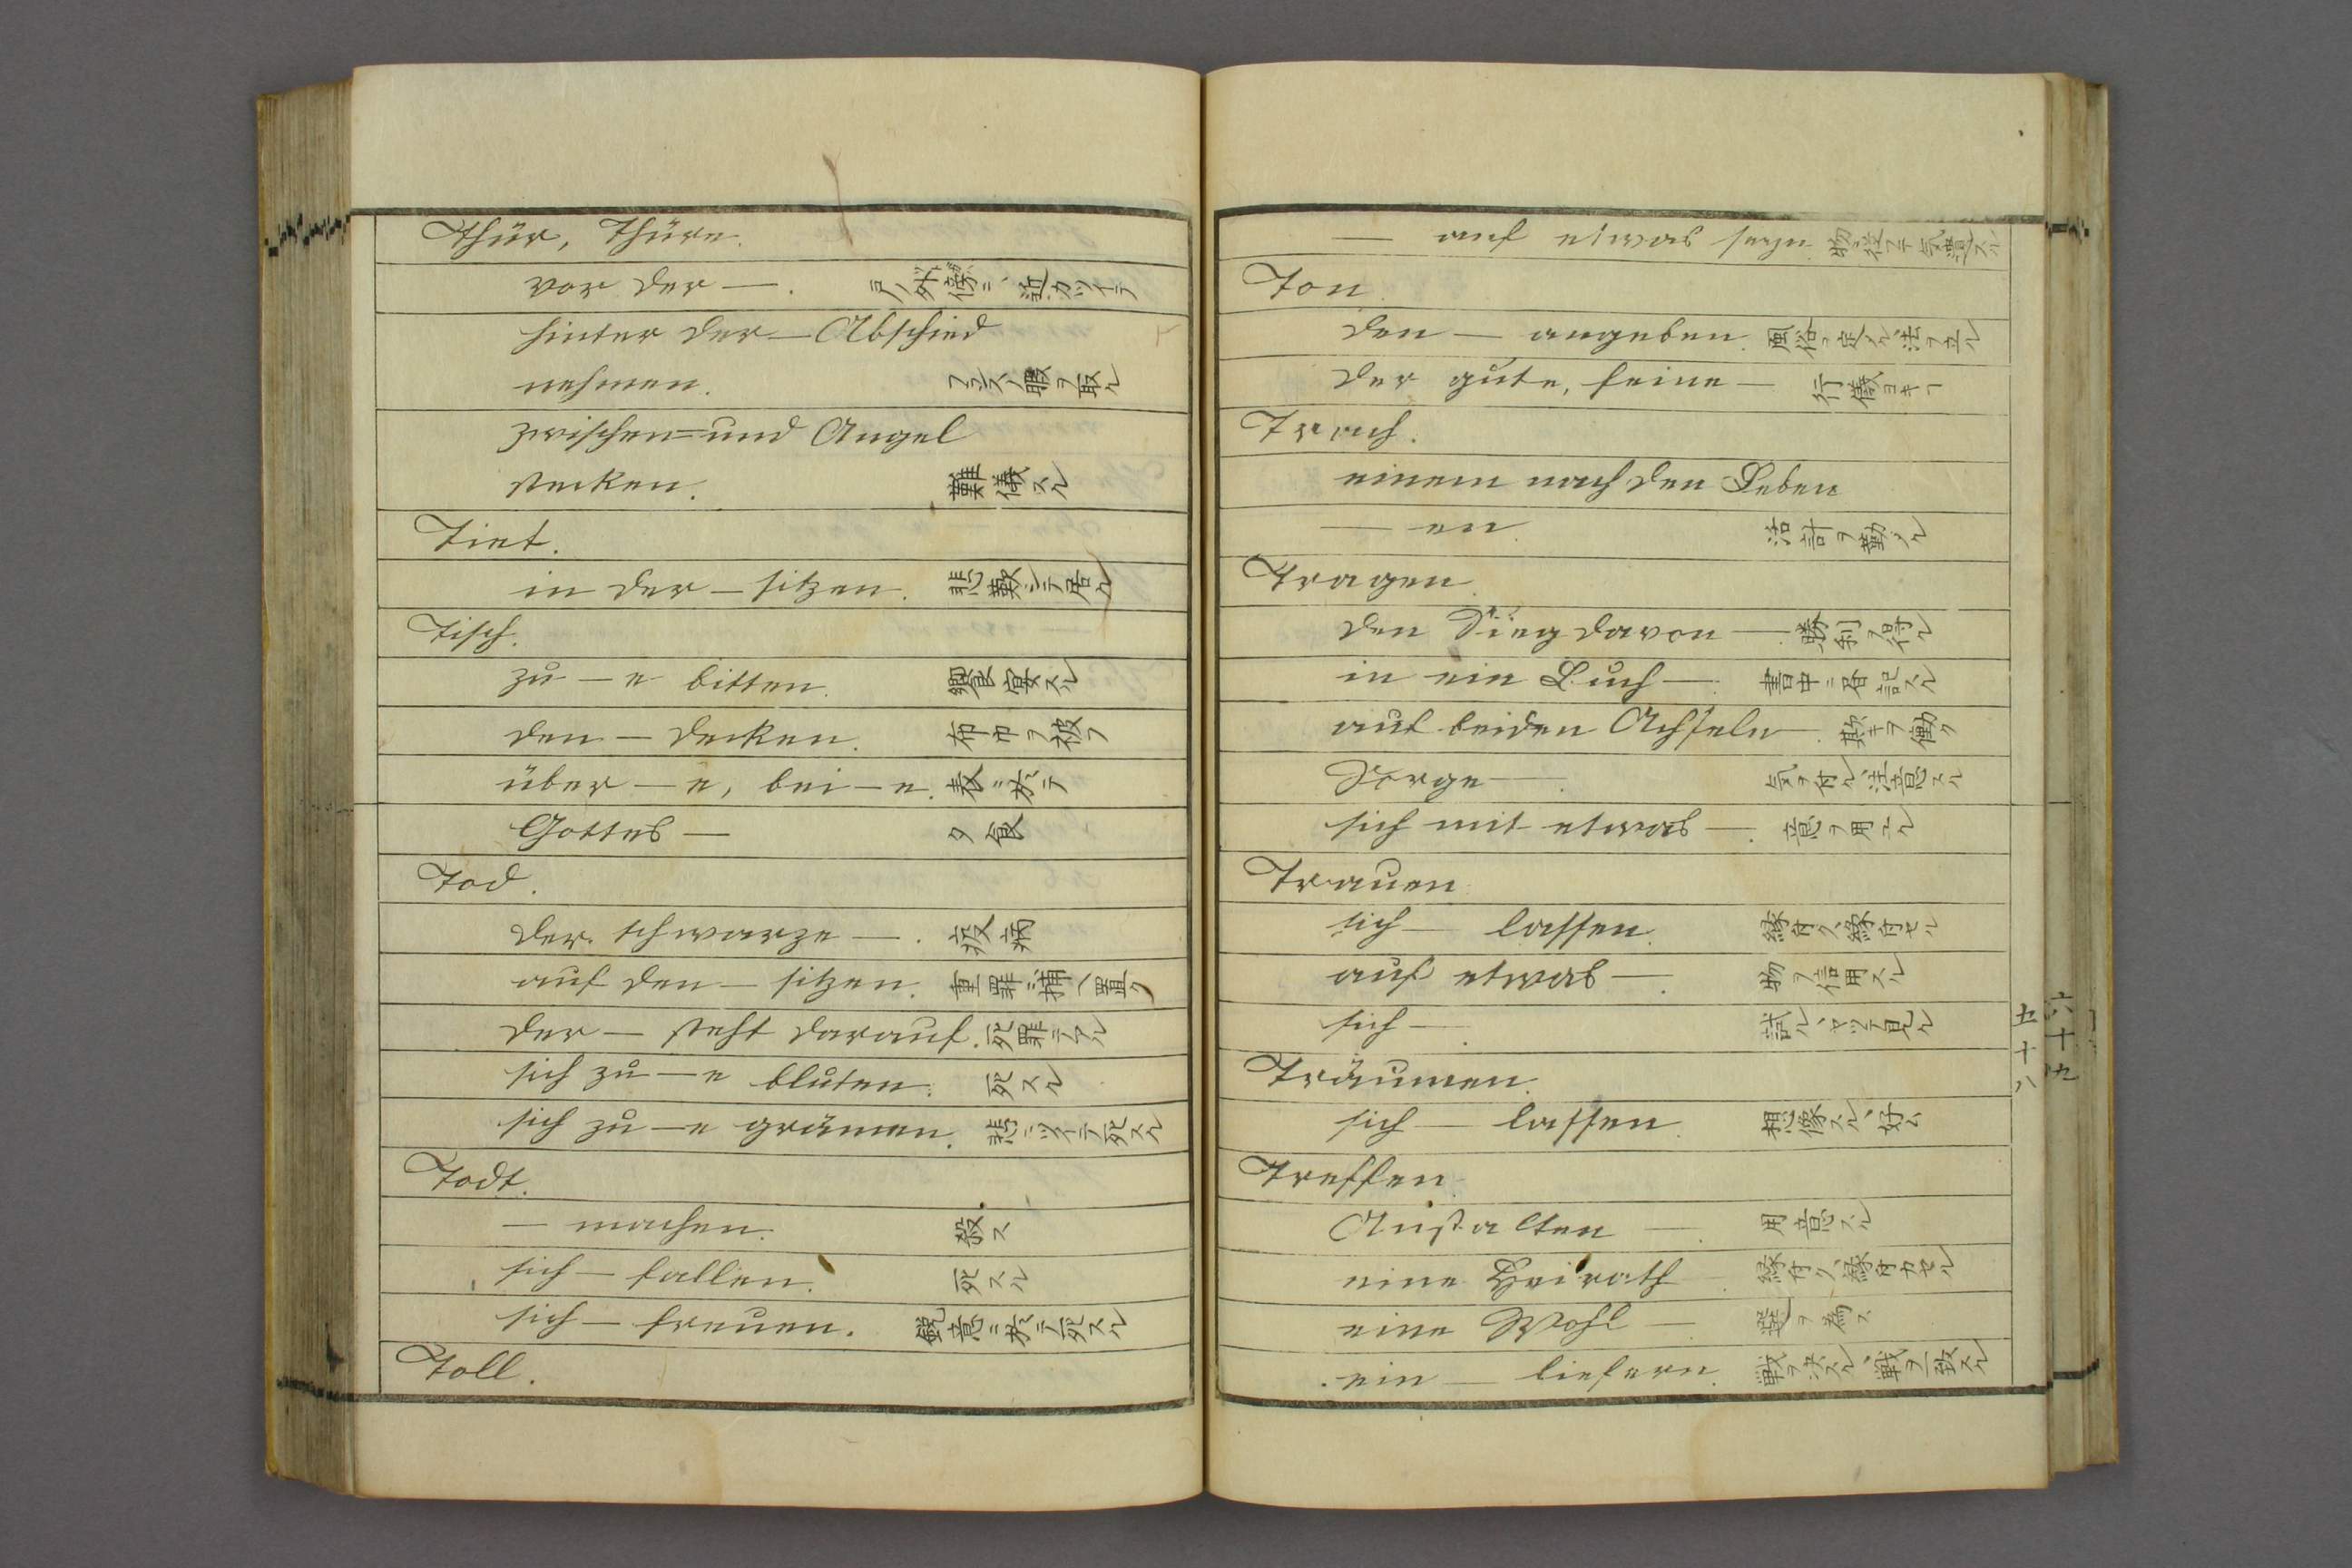 Thür, Thüre.
vor der —. 戸ノ外傍ニ、近カヅイテ
hinter der — Abschied
nehmen. 暇ヲ取ル
zwischen — und Angel
stecken. 難儀スル
Tint.
in der — sitzen. 悲歎シテ居ル
Tisch.
zu — e bitten. 饗宴スル
den — decken. 布巾ヲ被フ
über — e, bei — e.
Gottes — 夕食
Tod.
der schwarze —. 疫病
auf den — sitzen. 重罪 捕ヘ置ク
der — steht darauf. 死罪テアル
sich zu — e bluten. 死スル
sich zu — e grämen. 悲ニツイテ死スル
Todt.
— machen. 殺ス
sich — fallen. 死スル
sich — freuen. 死スル
Toll.
— auf etwas seyn.
Ton
den — angeben. 風俗ヲ定メル、法ヲ立ル
der gute, feine — 行儀ヨキ
Trach.
einem nach den Leben
— en. 活計ヲ勤メル
Tragen
den Sieg davon —. 勝利ヲ得ル
in ein Buch —. 書中ニ書記スル
auf beiden Achseln —. 欺キヲ働ク
Sorge —. 気ヲ付ル、注意スル
sich mit etwas —. 意ヲ用ユル
Trauen
sich — lassen. 縁付ク、縁付セル
auf etwas —. 物ヲ信用スル
sich —. 試ル、ヤツテ見ル
Träumen.
sich — lassen. 想像スル、好ム
Treffen.
Anstalten —. 用意スル
eine Heirath 縁付ク、縁付カセル
eine Wahl — 選ヲ為ス
ein — liefern. 戦ヲ決スル、戦ヲ致スル
五十八
六十五